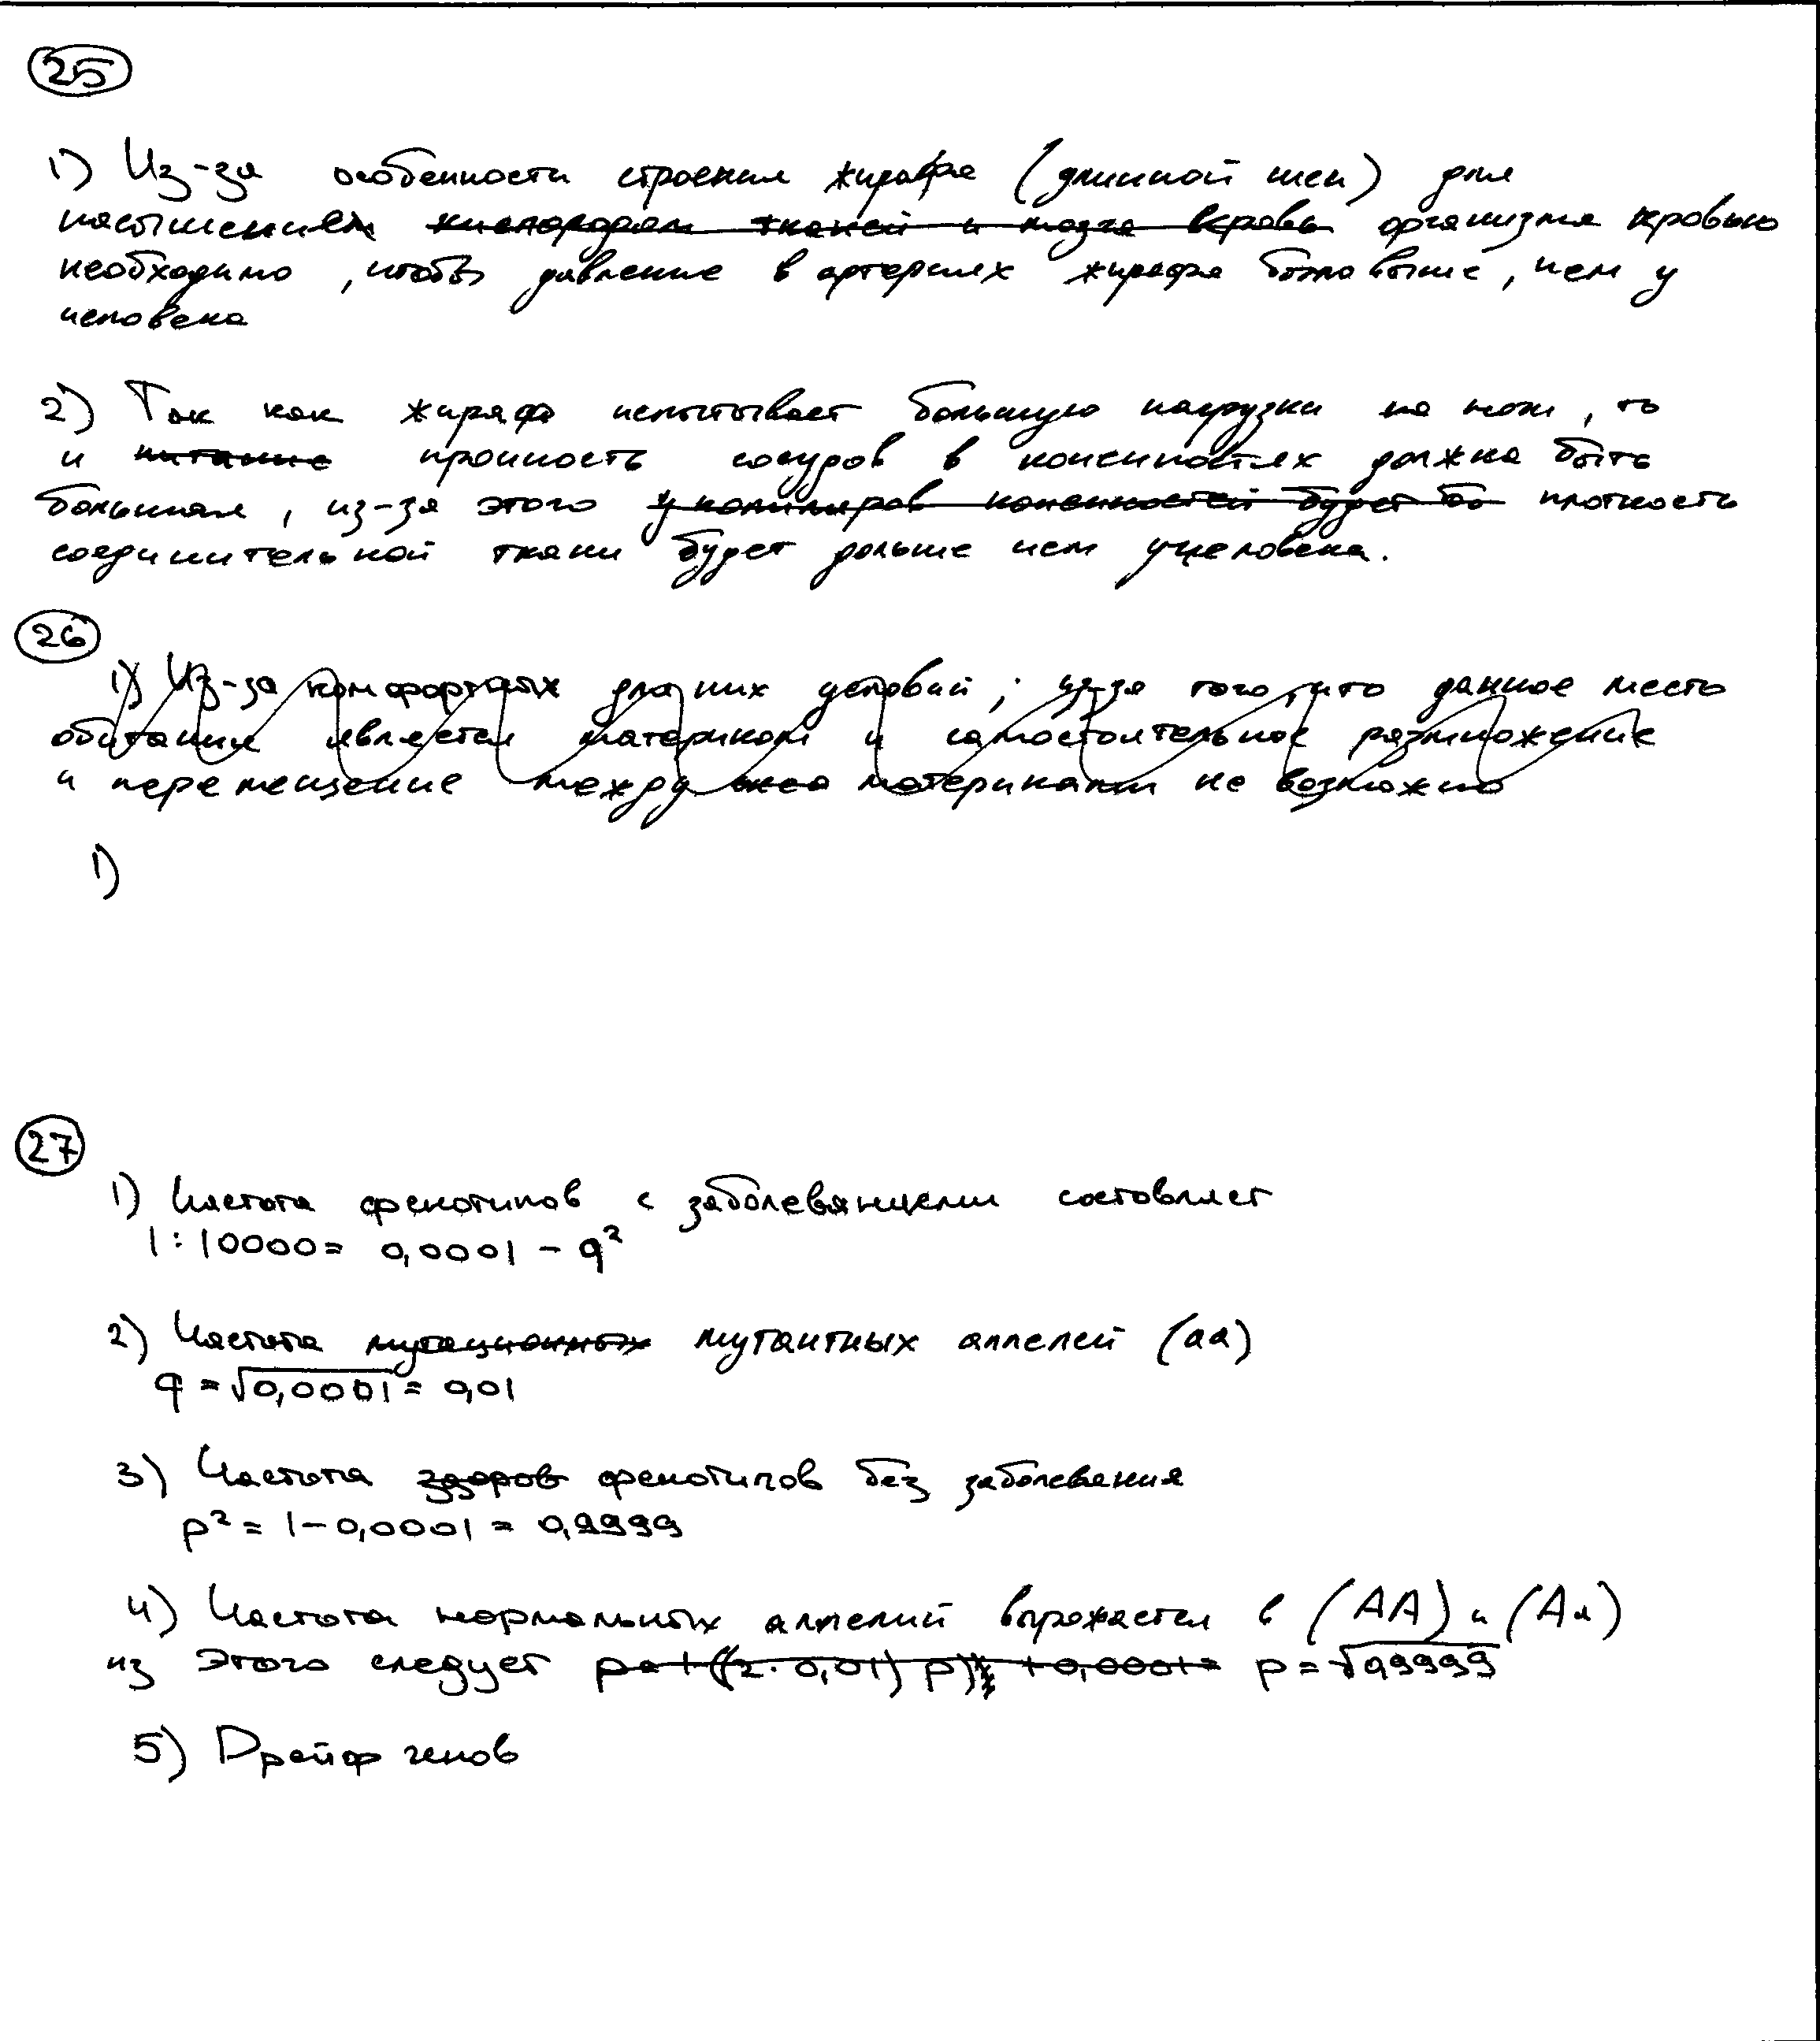 25
1) Из-за особенности строения жирафа (длинной шеи) для
насыщения кислородом тканей и мозга кровь организма кровью
необходимо, чтобы давление в артериях жирафа было выше, чем у
человека
2) Так как жираф испытывает большую нагрузки на ноги, то
и питание прочность сосудов в конечностях должна быть
большая, из-за этого у капилляров конечностей будет бо плотность
соединительной ткани будет дольше чем учеловека.
26
1) Из-за комфортных для них условий; из-за того, что данное место
обитания является материком и самостоятельное размножение
и перемещение между материками не возможно
1)
27
1) Частота фенотипов с заболеванием составляет
1:10000= 0,0001 - q²
2) Частота мутационных мутантных аллелей (аа)
q = √0,0001 = 0,01
3) Частота здоров фенотипов без заболевания
p² = 1-0,0001 = 0,9999
4) Частота нормальных аллелий выражается в (АА) и (Аа)
из этого следует p=1-((2·0,01) p) +0,0001= p=√0,9999
5) Дрейф генов